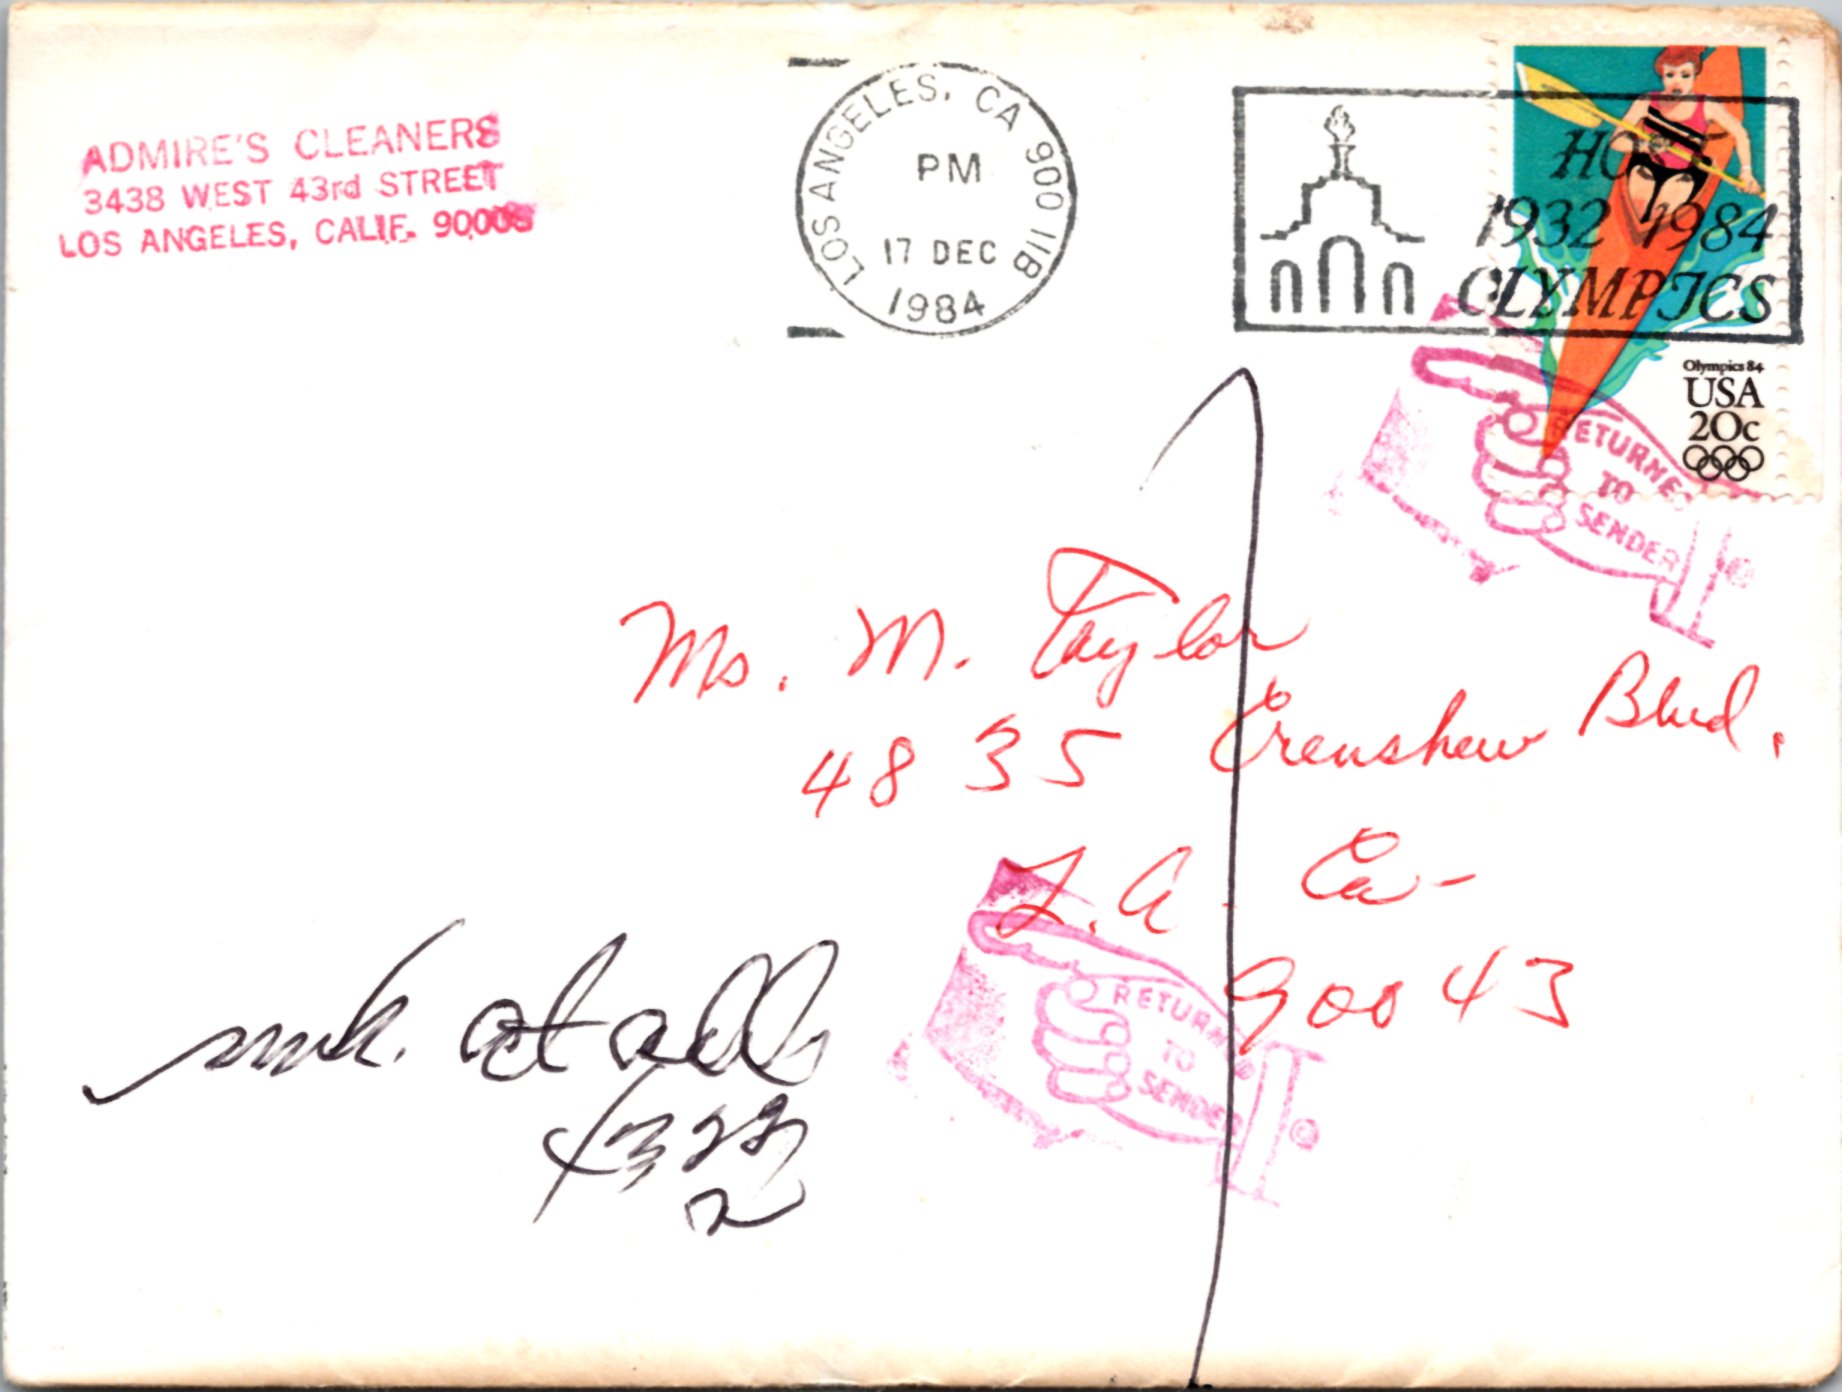 ADMIRE'S CLEANERS
3438 WEST 43rd STREET
LOS ANGELES, CALIF. 90008
LOS ANGELES, CA 900 11B
PM
17 DEC
1984
HOST
1932 1984
OLYMPICS
Olympics 84
USA
20c
RETURNED
TO
SENDER
Ms. M. Taylor
4835 Crenshaw Blvd.
L.A. Ca-
90043
RETURNED
TO
SENDER